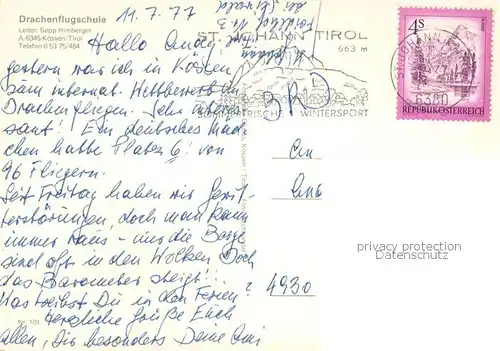 Drachenflugschule
Leiter: Sepp Himberger
A-6345 Kössen/Tirol
Telefon 0 53 75/484
11. 7. 77
Hallo
gestern war ich in Kössen
beim internat. Wettbewerb im
Drachenfliegen. Sehr interes-
sant! Ein deutsches Mäd-
chen hatte Platz 6! von
96 Fliegern.
Seit Freitag haben wir Gewit-
terstörungen, doch man kann
immer raus – nur die Berge
sind oft in den Wolken. Doch
das Barometer steigt!
Was treibst Du in den Ferien?
Herzliche Grüße Euch
allen, Dir besonders Deine
Nr. 101
ST. JOHANN TIROL
663 m
SOMMERFRISCHE WINTERSPORT
BRD
An
4930
4S
REPUBLIK ÖSTERREICH
ST. JOHANN
6380
privacy protection
watermark